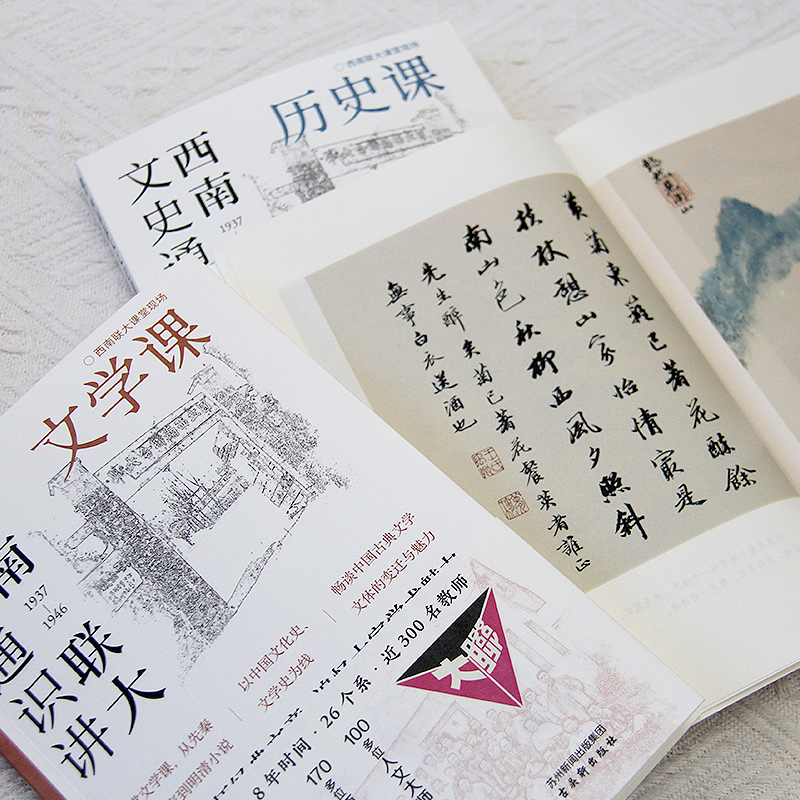 ○西南联大课堂现场
历史课
西南
文史通
1937
黄菊東蘺已著花醉餘
扶杖憩山家怡情最是
南山色秋柳西風夕照斜
先生醉矣菊已著花餐英者誰正
無事白衣送酒也
悠然見南山
○西南联大课堂现场
文学课
南
联大
通识讲
1937
1946
畅谈中国古典文学
文体的变迁与魅力
以中国文化史、
文学史为线
文学课，从先秦
到明清小说
8年时间·26个系·近300名教师
170多位
100多位人文大师
大聯
苏州新闻出版集团
古吴轩出版社